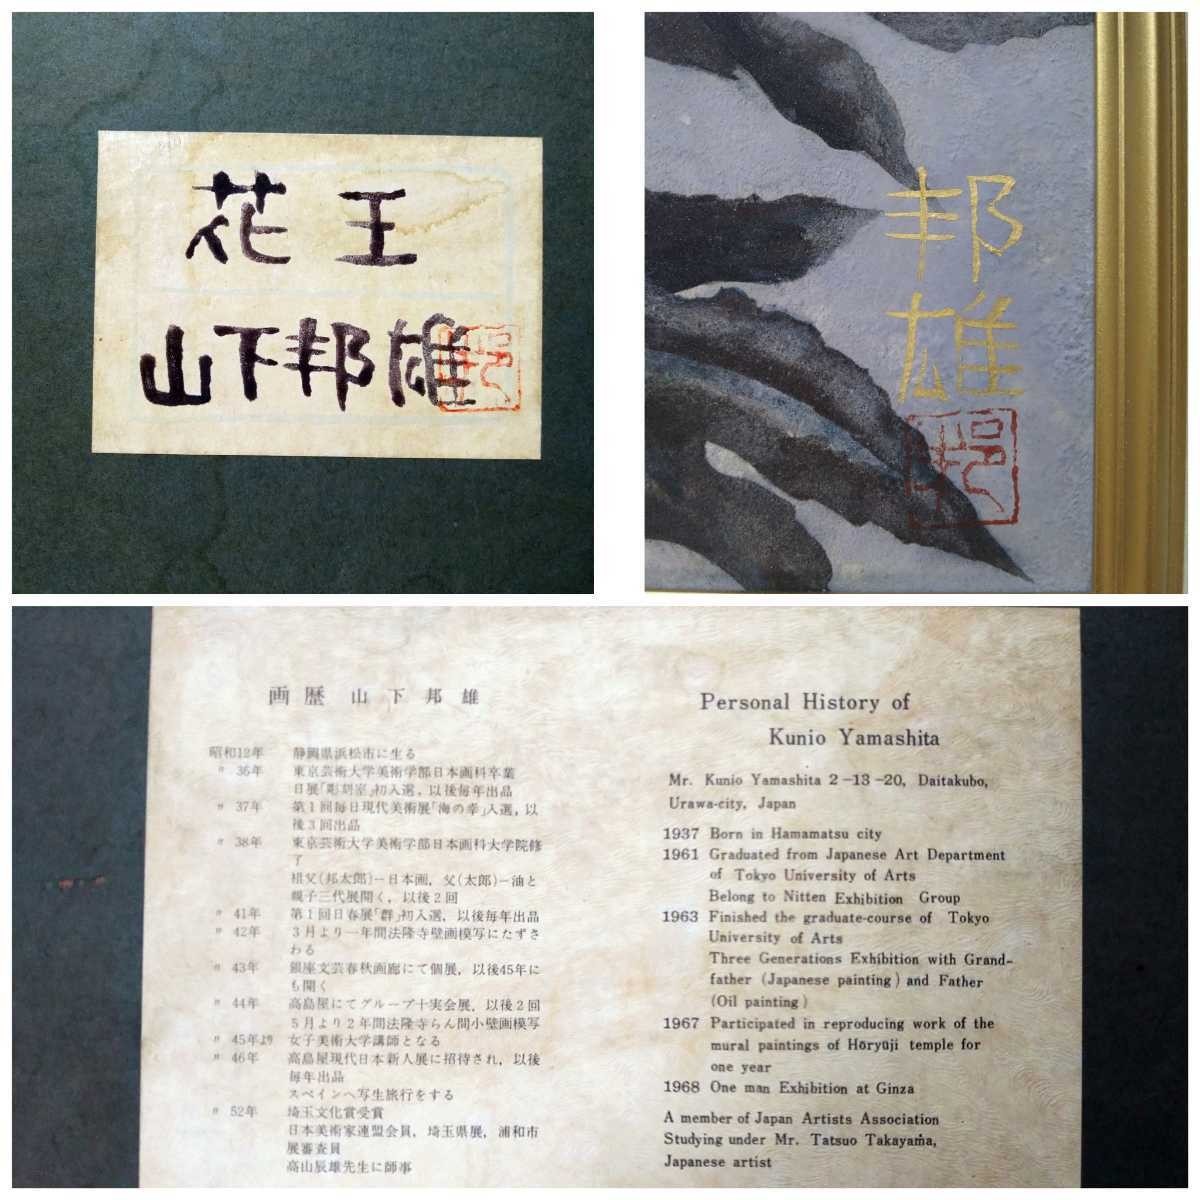 花王
山下邦雄
邦
邦
雄
邦
画歴 山下邦雄
昭和12年 静岡県浜松市に生る
〃 36年 東京芸術大学美術学部日本画科卒業
日展「彫刻室」初入選,以後毎年出品
〃 37年 第1回毎日現代美術展「海の幸」入選,以
後3回出品
〃 38年 東京芸術大学美術学部日本画科大学院修
了
祖父(邦太郎)−日本画,父(太郎)−油と
親子三代展開く,以後2回
〃 41年 第1回日春展「群」初入選,以後毎年出品
〃 42年 3月より一年間法隆寺壁画模写にたずさ
わる
〃 43年 銀座文芸春秋画廊にて個展,以後45年に
も開く
〃 44年 高島屋にてグループ十実会展,以後2回
5月より2年間法隆寺らん間小壁画模写
〃 45年より 女子美術大学講師となる
〃 46年 高島屋現代日本新人展に招待され,以後
毎年出品
スペインへ写生旅行をする
〃 52年 埼玉文化賞受賞
日本美術家連盟会員,埼玉県展,浦和市
展審査員
高山辰雄先生に師事
Personal History of
Kunio Yamashita
Mr. Kunio Yamashita 2-13-20, Daitakubo,
Urawa-city, Japan
1937 Born in Hamamatsu city
1961 Graduated from Japanese Art Department
of Tokyo University of Arts
Belong to Nitten Exhibition Group
1963 Finished the graduate-course of Tokyo
University of Arts
Three Generations Exhibition with Grand-
father (Japanese painting) and Father
(Oil painting)
1967 Participated in reproducing work of the
mural paintings of Hōryūji temple for
one year
1968 One man Exhibition at Ginza
A member of Japan Artists Association
Studying under Mr. Tatsuo Takayama,
Japanese artist